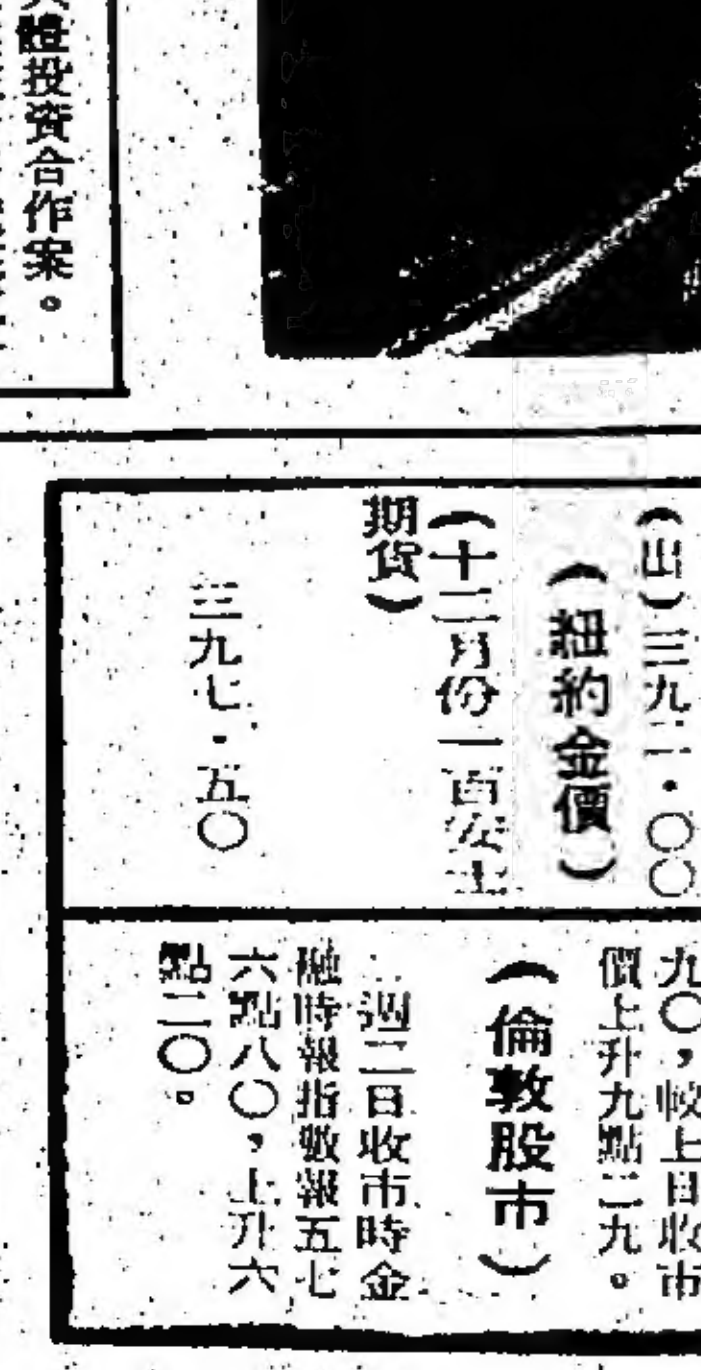 體投資合作案。
(出)三九二·〇〇
(紐約金價)
(十二月份一百安士
期貨)
三九七·五〇
九〇,較上日收市
價上升九點二九。
(倫敦股市)
週二日收市時金
融時報指數報五七
六點八〇,上升六
點二〇。